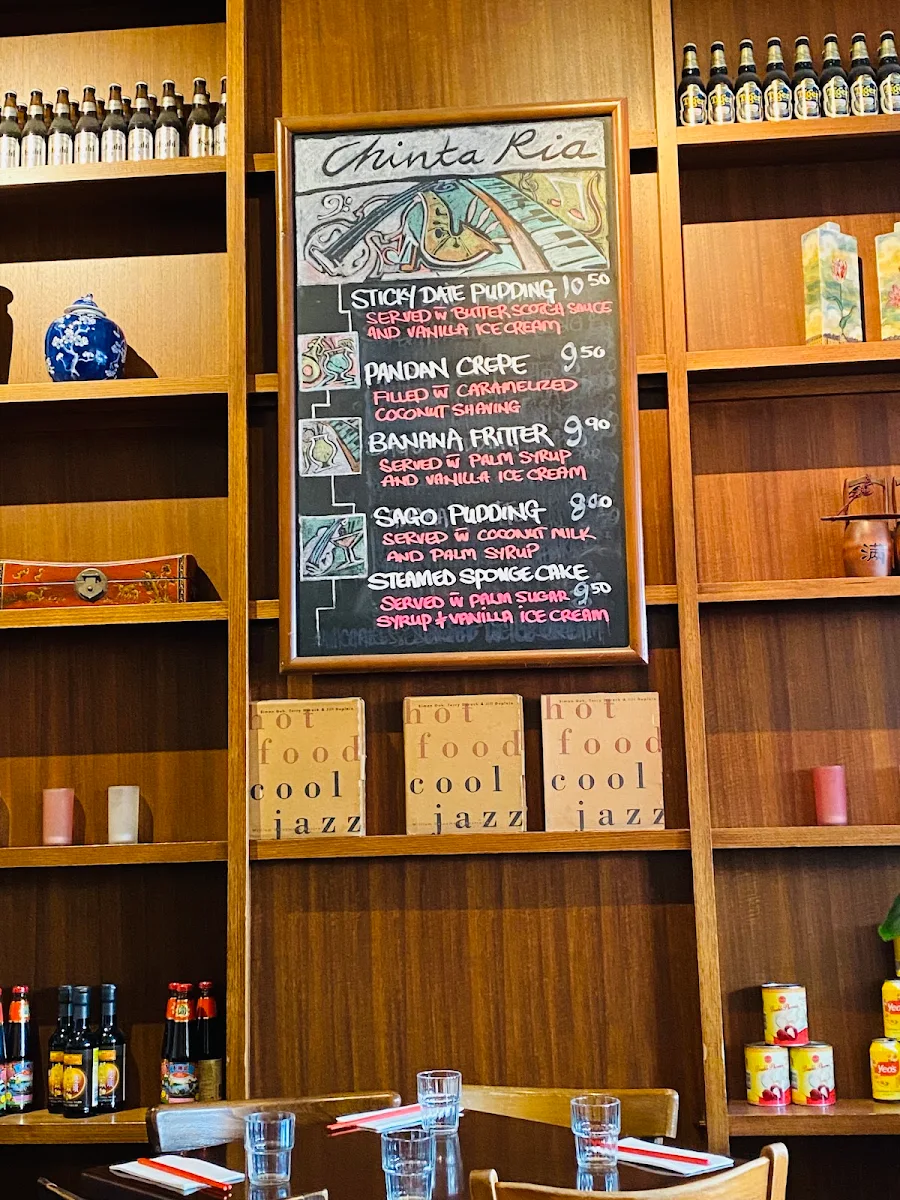 Chinta Ria
STICKY DATE PUDDING 10 50
SERVED W̄ BUTTERSCOTCH SAUCE
AND VANILLA ICE CREAM
PANDAN CREPE 9 50
FILLED W̄ CARAMELIZED
COCONUT SHAVING
BANANA FRITTER 9 90
SERVED W̄ PALM SYRUP
AND VANILLA ICE CREAM
SAGO PUDDING 8 00
SERVED W̄ COCONUT MILK
AND PALM SYRUP
STEAMED SPONGE CAKE
SERVED W̄ PALM SUGAR 9 50
SYRUP + VANILLA ICE CREAM
hot
food
cool
jazz
hot
food
cool
jazz
hot
food
cool
jazz
Tiger
Tiger
Tiger
Tiger
Tiger
Tiger
Tiger
Tiger
满
Yeo's
Yeo's